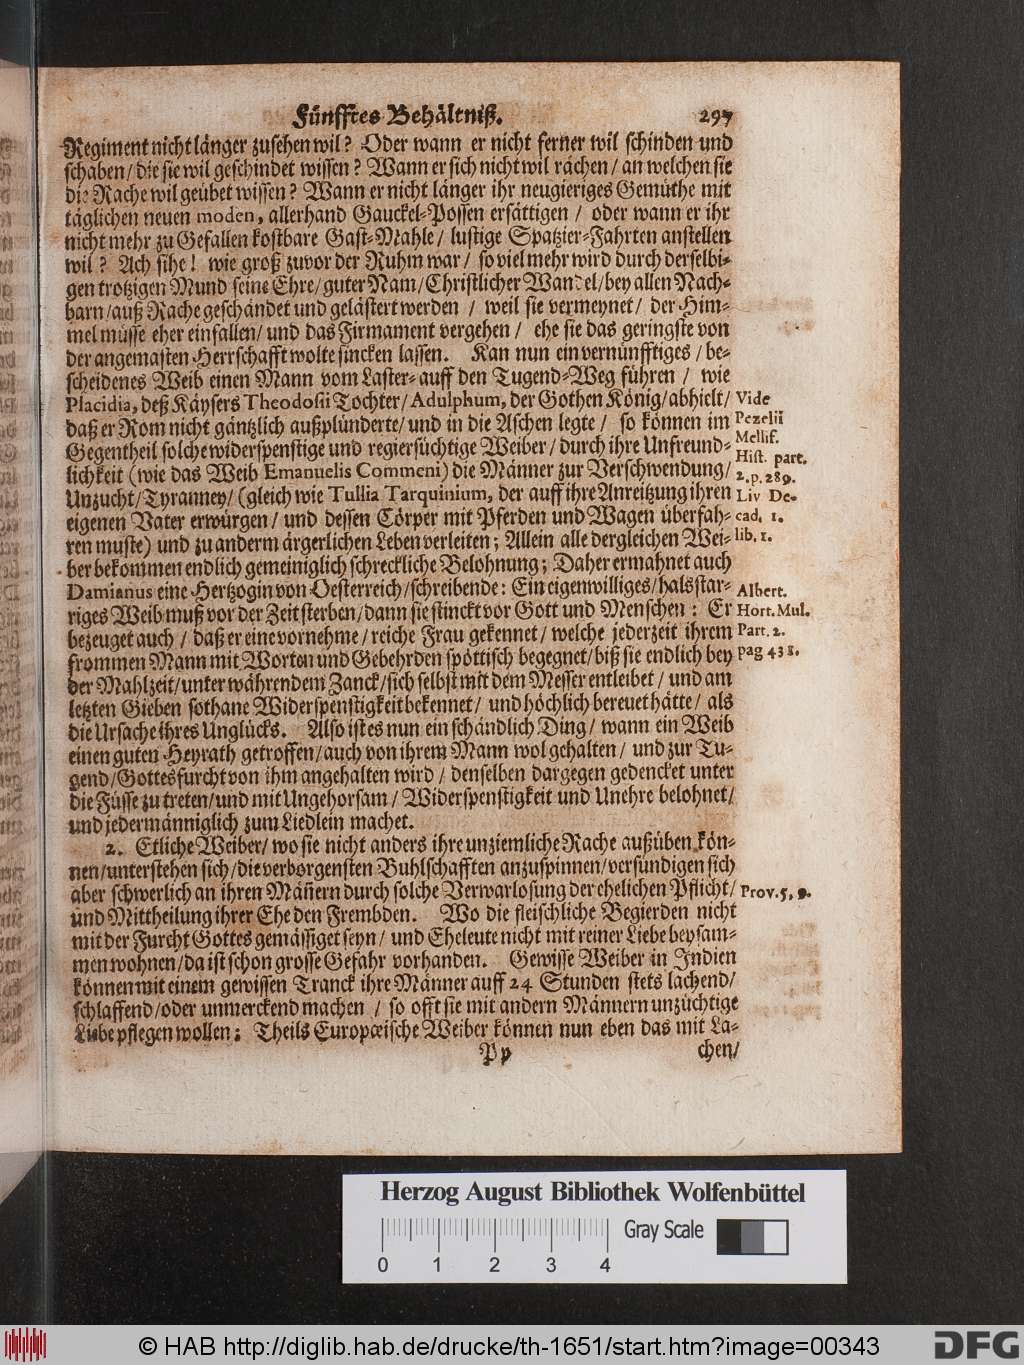 Fünfftes Behältniß. 297
Regiment nicht länger zusehen wil? Oder wann er nicht ferner wil schinden und
schaben/ die sie wil geschindet wissen? Wann er sich nicht wil rächen/ an welchen sie
die Rache wil geübet wissen? Wann er nicht länger ihr neugieriges Gemüthe mit
täglichen neuen moden, allerhand Gauckel-Possen ersättigen / oder wann er ihr
nicht mehr zu Gefallen kostbare Gast-Mahle/ lustige Spatzier-Fahrten anstellen
wil? Ach sihe! wie groß zuvor der Ruhm war/ so viel mehr wird durch derselbi-
gen trotzigen Mund seine Ehre/ guter Nam/ Christlicher Wandel/ bey allen Nach-
barn/ auß Rache geschändet und gelästert werden / weil sie vermeynet/ der Him-
mel müsse eher einfallen/ und das Firmament vergehen / ehe sie das geringste von
der angemasten Herrschafft wolte sincken lassen. Kan nun ein vernünfftiges / be-
scheidenes Weib einen Mann vom Laster- auff den Tugend-Weg führen / wie
Placidia, deß Käysers Theodosii Tochter/ Adulphum, der Gothen König/ abhielt/
daß er Rom nicht gäntzlich außplünderte/ und in die Aschen legte / so können im
Gegentheil solche widerspenstige und regiersüchtige Weiber/ durch ihre Unfreund-
lichkeit (wie das Weib Emanuelis Commeni) die Männer zur Verschwendung/
Unzucht/ Tyranney/ (gleich wie Tullia Tarquinium, der auff ihre Anreitzung ihren
eigenen Vater erwürgen/ und dessen Cörper mit Pferden und Wagen überfah-
ren muste) und zu anderm ärgerlichen Leben verleiten; Allein alle dergleichen Wei-
ber bekommen endlich gemeiniglich schreckliche Belohnung; Daher ermahnet auch
Damianus eine Hertzogin von Oesterreich/ schreibende: Ein eigenwilliges/ halsstar-
riges Weib muß vor der Zeit sterben/ dann sie stinckt vor Gott und Menschen: Er
bezeuget auch / daß er eine vornehme/ reiche Frau gekennet/ welche jederzeit ihrem
frommen Mann mit Worten und Gebehrden spöttisch begegnet/ biß sie endlich bey
der Mahlzeit/ unter währendem Zanck/ sich selbst mit dem Messer entleibet / und am
letzten Gieben sothane Widerspenstigkeit bekennet/ und höchlich bereuet hätte/ als
die Ursache ihres Unglücks. Also ist es nun ein schändlich Ding/ wann ein Weib
einen guten Heyrath getroffen/ auch von ihrem Mann wol gehalten / und zur Tu-
gend/ Gottesfurcht von ihm angehalten wird / denselben dargegen gedencket unter
die Füsse zu treten/ und mit Ungehorsam / Widerspenstigkeit und Unehre belohnet/
und jedermänniglich zum Liedlein machet.
2. Etliche Weiber/ wo sie nicht anders ihre unziemliche Rache außüben kön-
nen/ unterstehen sich/ die verborgensten Buhlschafften anzuspinnen/ versündigen sich
aber schwerlich an ihren Mäñern durch solche Verwarlosung der ehelichen Pflicht/
und Mittheilung ihrer Ehe den Frembden. Wo die fleischliche Begierden nicht
mit der Furcht Gottes gemässiget seyn/ und Eheleute nicht mit reiner Liebe beysam-
men wohnen/ da ist schon grosse Gefahr vorhanden. Gewisse Weiber in Indien
können mit einem gewissen Tranck ihre Männer auff 24 Stunden stets lachend/
schlaffend/ oder unmerckend machen / so offt sie mit andern Männern unzüchtige
Liebe pflegen wollen: Theils Europœische Weiber können nun eben das mit La-
Pp chen/
Vide
Pezelii
Mellif.
Hist. part.
2. p. 289.
Liv De-
cad. 1.
lib. 1.
Albert.
Hort. Mul.
Part. 2.
pag 438.
Prov. 5, 9.
Herzog August Bibliothek Wolfenbüttel
Gray Scale
0 1 2 3 4
© HAB http://diglib.hab.de/drucke/th-1651/start.htm?image=00343
DFG